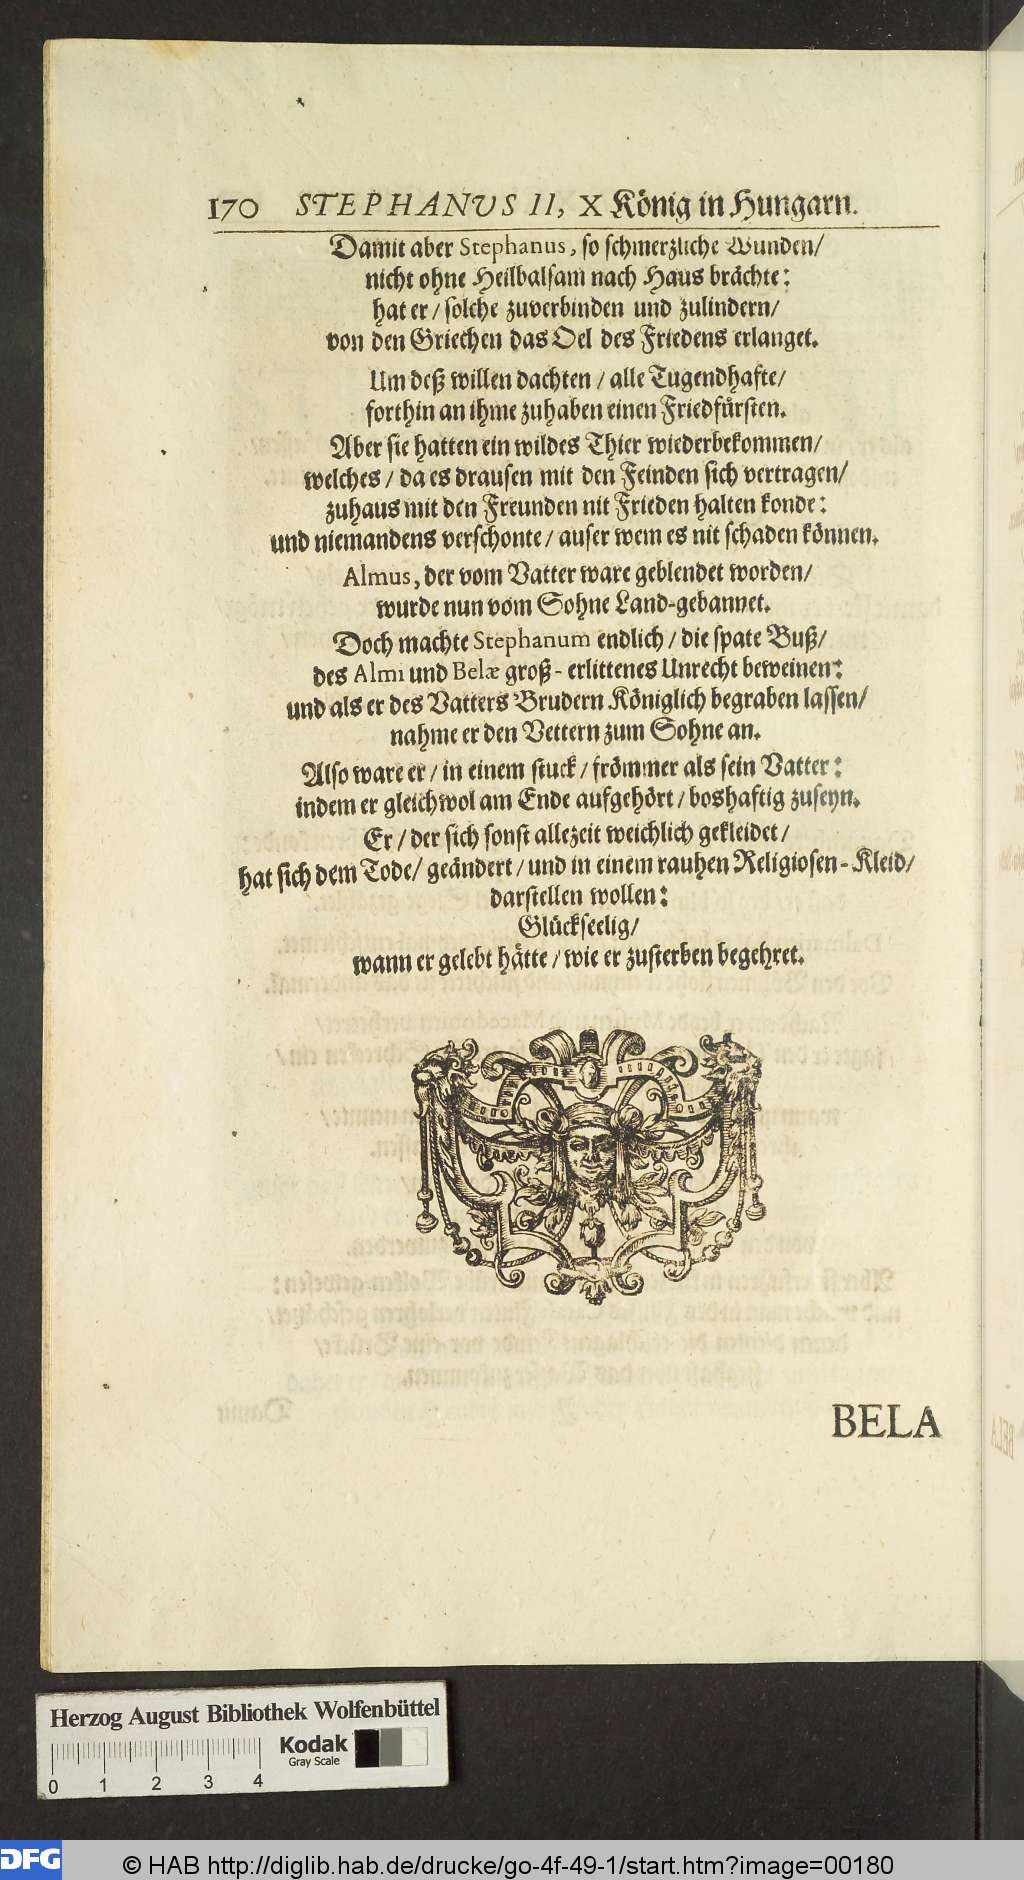 170 STEPHANUS II, X König in Hungarn.
Damit aber Stephanus, so schmerzliche Wunden/
nicht ohne Heilbalsam nach Haus brächte:
hat er / solche zuverbinden und zulindern/
von den Griechen das Oel des Friedens erlanget.
Um deß willen dachten / alle Tugendhafte/
forthin an ihme zuhaben einen Friedfürsten.
Aber sie hatten ein wildes Thier wiederbekommen/
welches / da es drausen mit den Feinden sich vertragen/
zuhaus mit den Freunden nit Frieden halten konde:
und niemandens verschonte / auser wem es nit schaden können.
Almus, der vom Vatter ware geblendet worden/
wurde nun vom Sohne Land-gebannet.
Doch machte Stephanum endlich / die spate Buß/
des Almi und Belæ groß-erlittenes Unrecht beweinen:
und als er des Vatters Brudern Königlich begraben lassen/
nahme er den Vettern zum Sohne an.
Also ware er / in einem stuck / frömmer als sein Vatter:
indem er gleichwol am Ende aufgehört / boshaftig zuseyn.
Er / der sich sonst allezeit weichlich gekleidet /
hat sich dem Tode/ geändert / und in einem rauhen Religiosen-Kleid/
darstellen wollen:
Glückseelig/
wann er gelebt hätte / wie er zusterben begehret.
BELA
Herzog August Bibliothek Wolfenbüttel
Kodak
Gray Scale
0 1 2 3 4
DFG
© HAB http://diglib.hab.de/drucke/go-4f-49-1/start.htm?image=00180